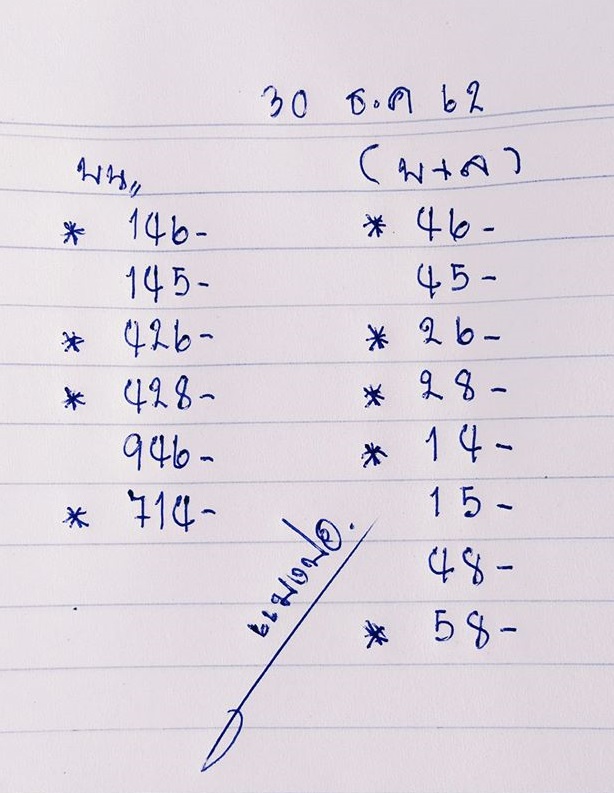 30 ธ.ค 62
บน,,
* 146-
145-
* 426-
* 428-
946-
* 714-
(บ+ล)
* 46-
45-
* 26-
* 28-
* 14-
15-
48-
* 58-